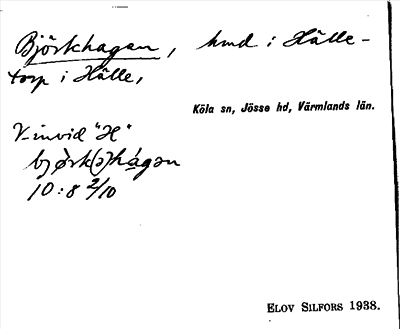 Björkhagan, hmd i Hälle-
torp i Hälle,
Köla sn, Jösse hd, Värmlands län.
V-invid "H"
bjørk(ə)hágən
10:8 2/10
ELOV SILFORS 1938.